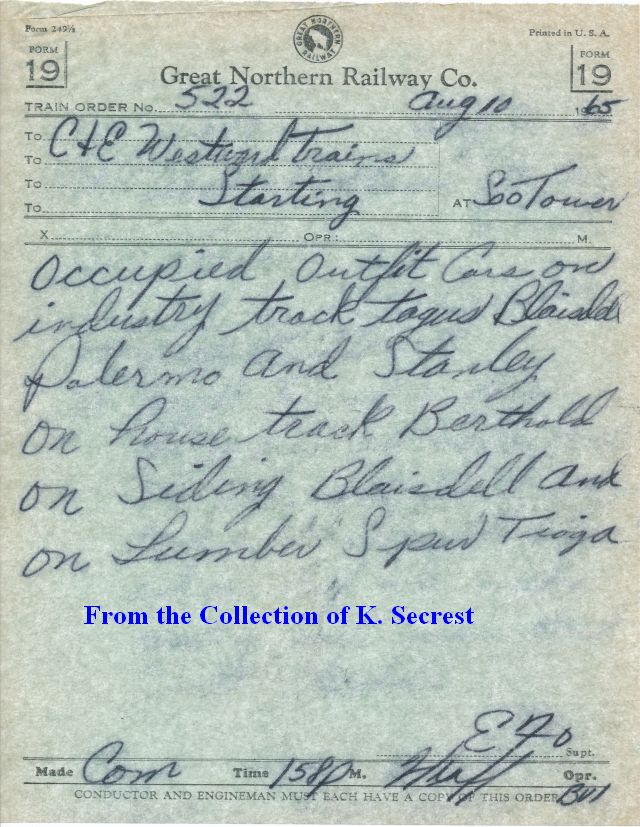 Form 249½
Printed in U. S. A.
GREAT NORTHERN RAILWAY
FORM 19
FORM 19
Great Northern Railway Co.
TRAIN ORDER No. 522 Aug 10 1965
To C&E Westward trains
To
To Starting
To AT Soo Tower
X OPR.: M.
Occupied Outfit Cars on
industry track tagus Blaisdell
Palermo And Stanley
on house track Berthold
on Siding Blaisdell and
on Lumber Spur Tioga
From the Collection of K. Secrest
Supt.
Made Com Time 158p M. Opr.
CONDUCTOR AND ENGINEMAN MUST EACH HAVE A COPY OF THIS ORDER